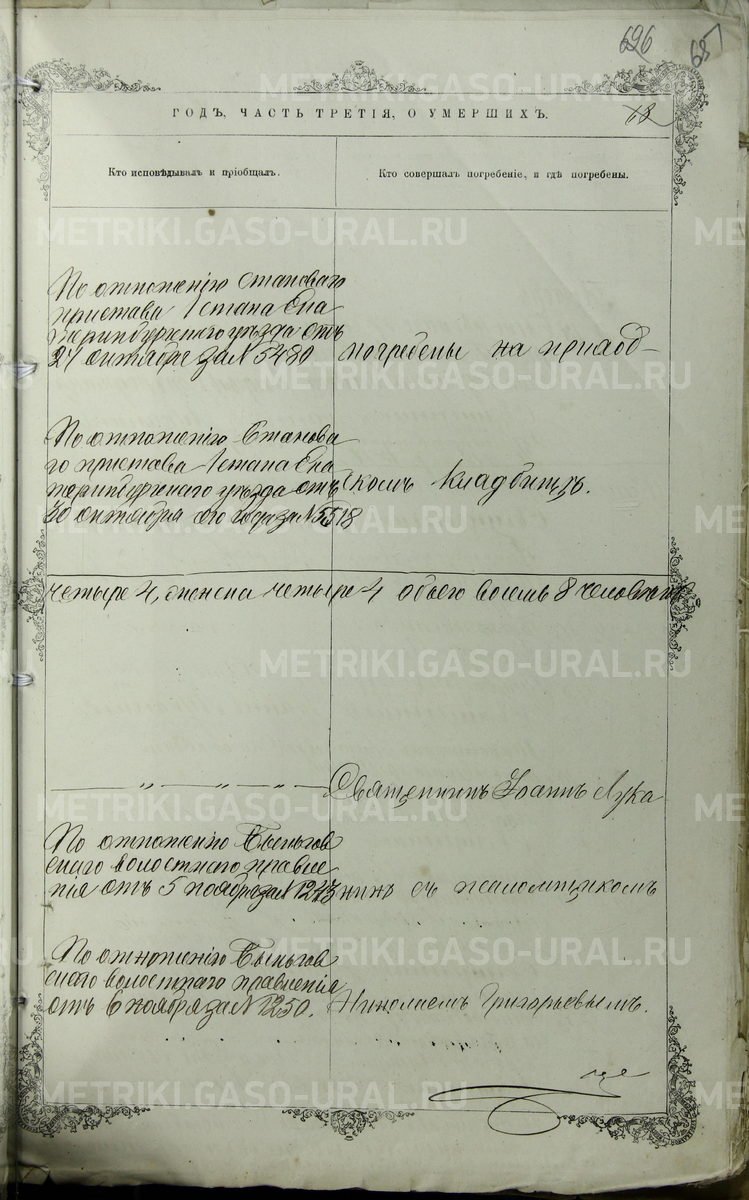 696
68
ГОДЪ, ЧАСТЬ ТРЕТІЯ, О УМЕРШИХЪ.
Кто исповѣдывалъ и пріобщалъ.
Кто совершалъ погребеніе, и гдѣ погребены.
По отношенію Становаго
пристава 1 стана Ека
теринбургскаго уѣзда отъ
24 октября за № 5480
погребены на приход-
По отношенію Станова
го пристава 1 стана Ека
теринбургскаго уѣзда отъ
30 октября сего года за № 5518
скомъ кладбищѣ.
четыре 4, женска четыре 4 обоего восемь 8 человѣкъ
Священникъ Іоаннъ Лука
По отношенію Быньгов
скаго волостнаго правле
нія отъ 5 ноября за № 1243
нинъ съ псаломщикомъ
По отношенію Быньгов
скаго волостнаго правленія
отъ 6 ноября за № 1250.
Николаемъ Григорьевымъ.
METRIKI.GASO-URAL.RU